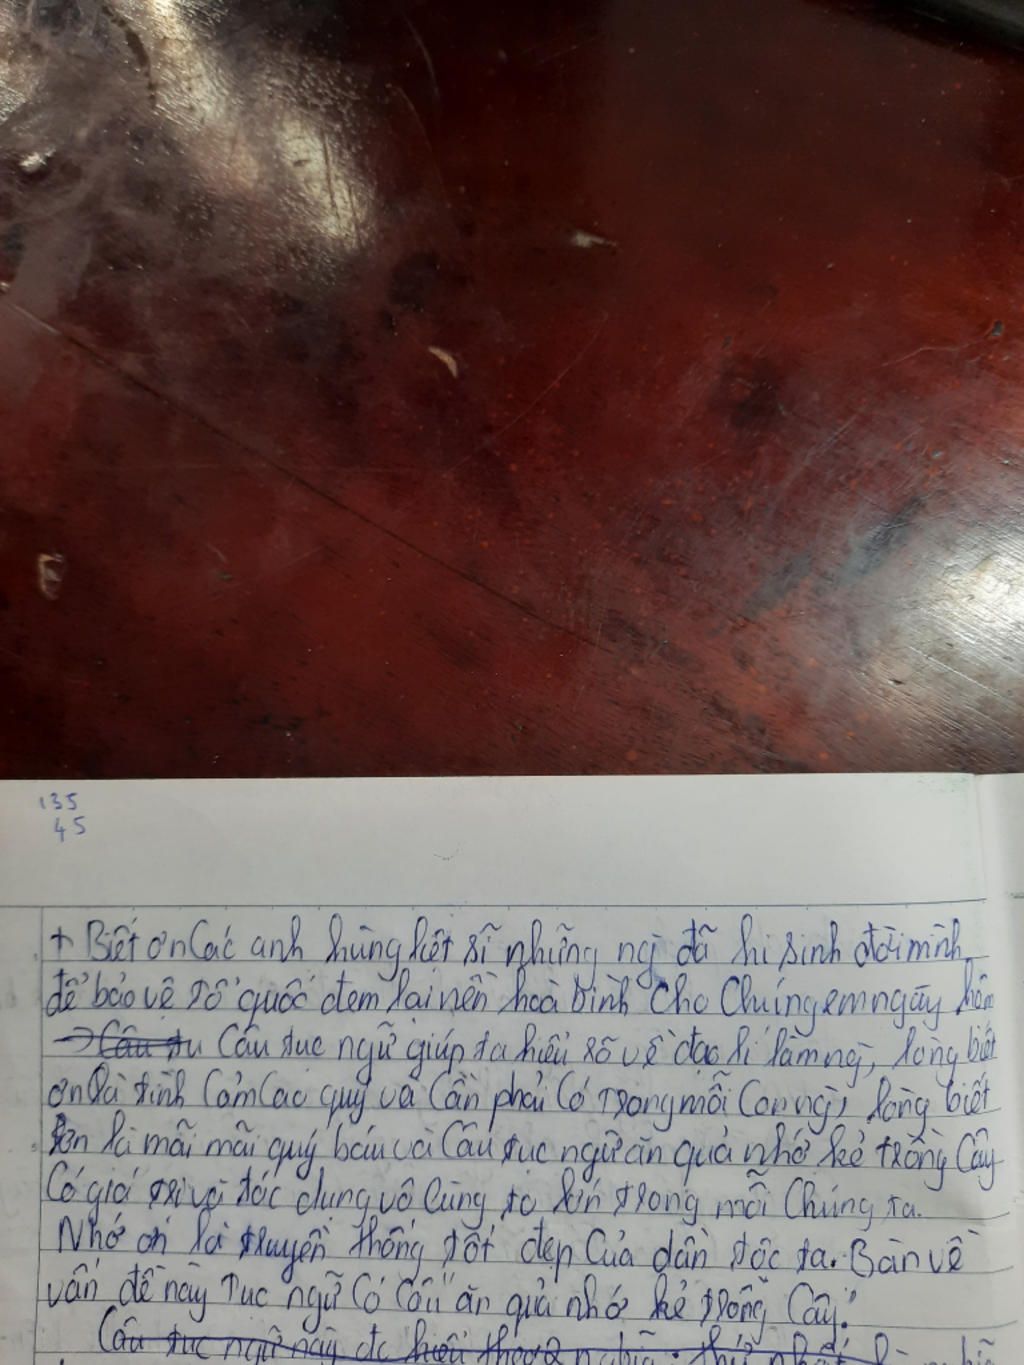 135
45
+ Biết ơn các anh hùng liệt sĩ những ng` đã hi sinh đời mình
để bảo vệ tổ quốc đem lại nền hoà bình cho chúng em ngày hôm
→ Câu tu Câu tục ngữ giúp ta hiểu rõ về đạo lí làm ng`, lòng biết
ơn là tình cảm cao quý và cần phải có trong mỗi con ng`, lòng biết
ơn là mãi mãi quý báu và câu tục ngữ ăn quả nhớ kẻ trồng cây
có giá trị và tác dụng vô cùng to lớn trong mỗi chúng ta.
Nhớ ơn là truyền thống tốt đẹp của dân tộc ta. Bàn về
vấn đề này tục ngữ có câu "ăn quả nhớ kẻ trồng cây."
Câu tục ngữ này đc hiểu theo 2 nghĩa: thứ nhất